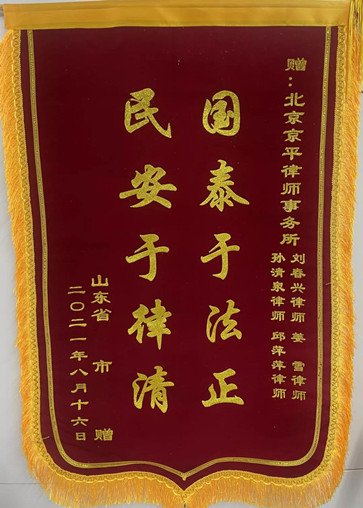 赠：北京京平律师事务所
刘春兴律师 姜雪律师
孙清泉律师 邱萍萍律师
国泰于法正
民安于律清
山东省 市 赠
二〇二一年八月十六日